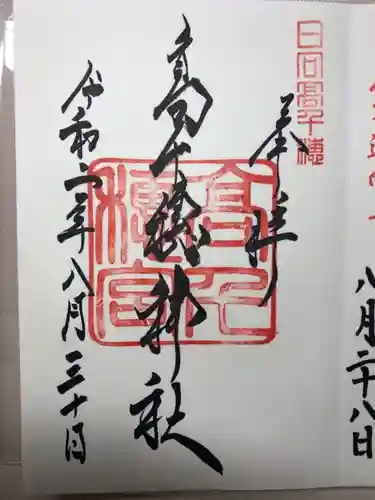 八月二十八日
日向高千穂
奉拝
高千穂神社
高千穂宮
令和二年八月三十日